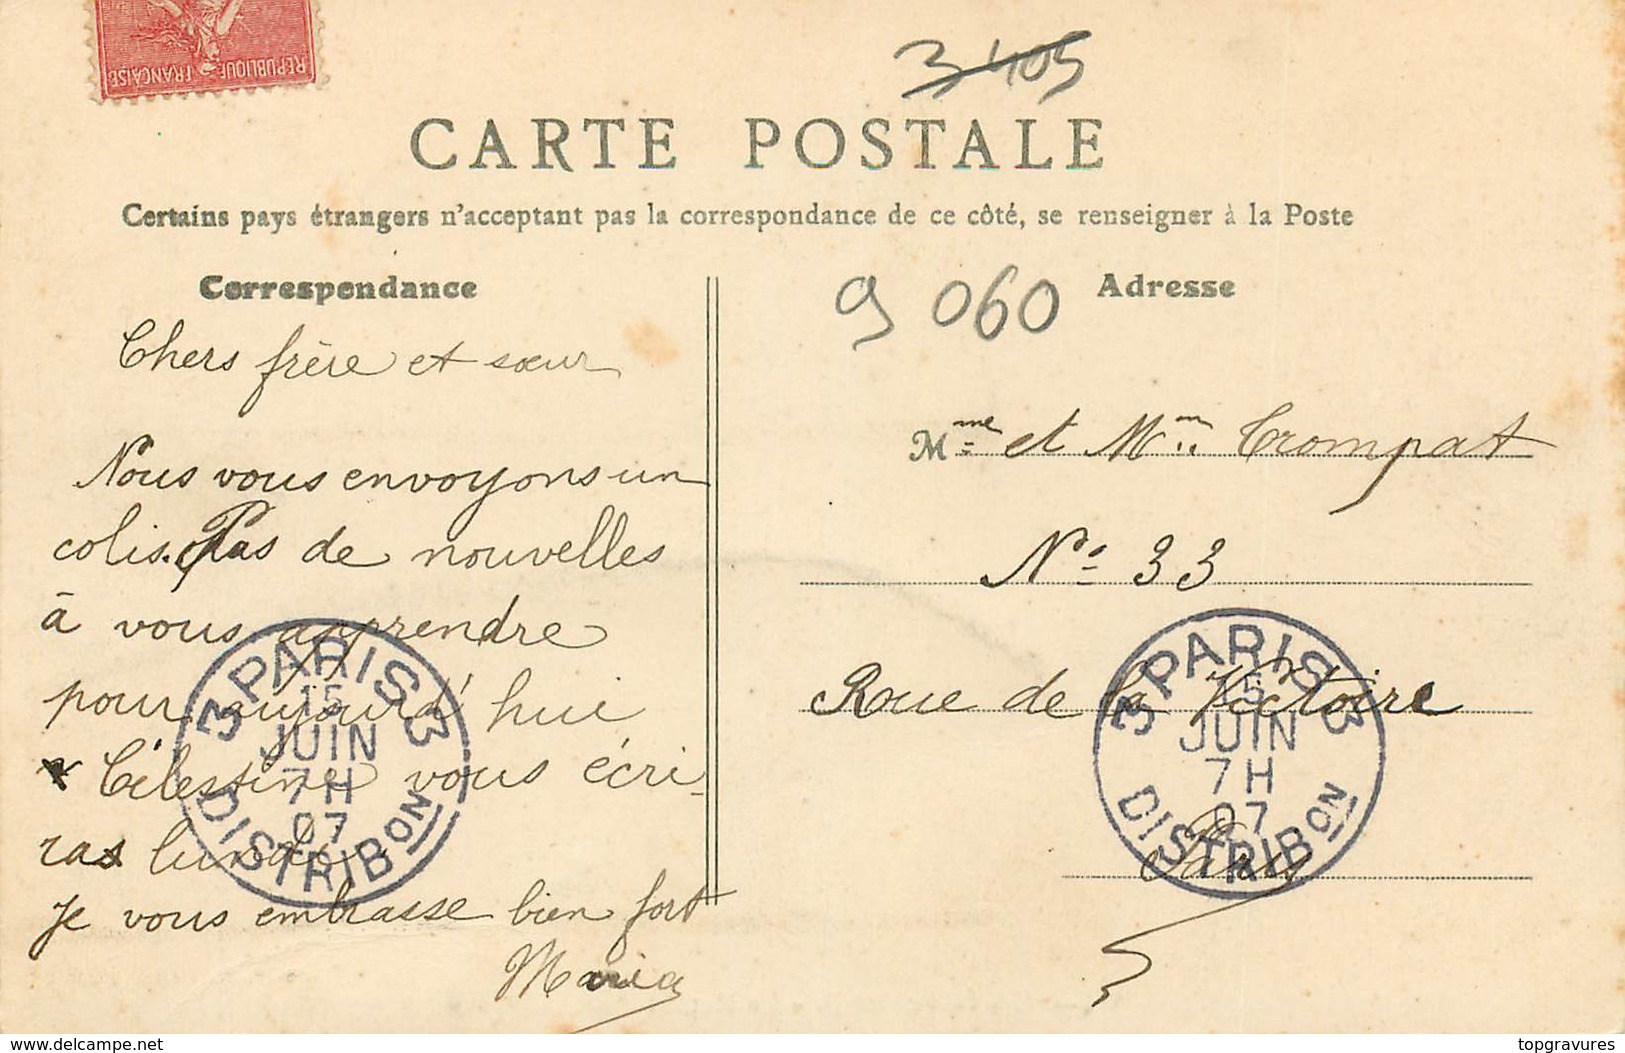 REPUBLIQUE FRANÇAISE
3 405
CARTE POSTALE
Certains pays étrangers n'acceptant pas la correspondance de ce côté, se renseigner à la Poste
Correspondance
Chers frère et sœur
Nous vous envoyons un
colis. Pas de nouvelles
à vous apprendre
pour aujourd'hui
Célestine vous écri-
ras lundi
Je vous embrasse bien fort
Maria
3 PARIS 3
15
JUIN
7H
07
DISTRIBON
Adresse
9 060
Mme et Mr. Trompat
No. 33
Roue de la Victoire
Paris
3 PARIS 3
15
JUIN
7H
07
DISTRIBON
www.delcampe.net
topgravures